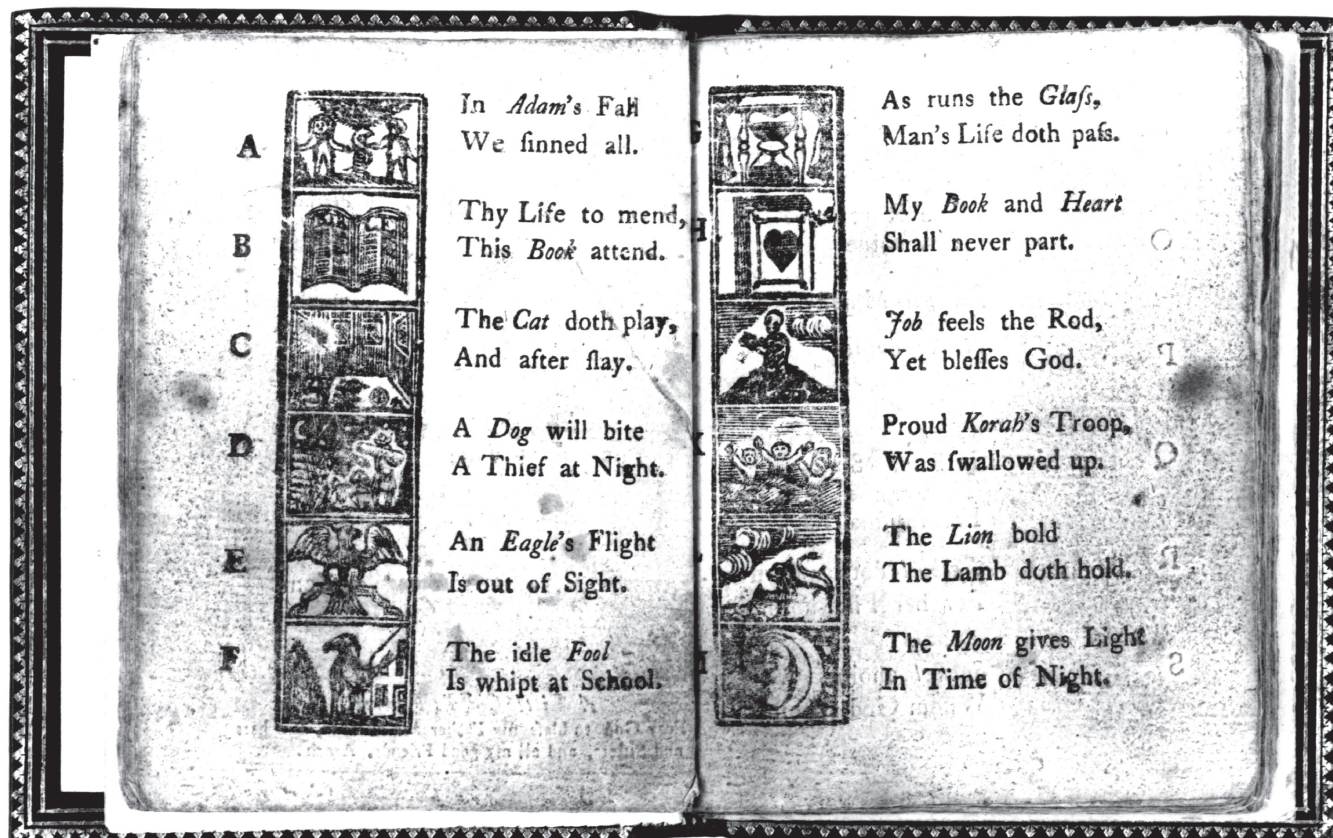 A
In Adam's Fall
We ſinned all.
B
Thy Life to mend,
This Book attend.
C
The Cat doth play,
And after ſlay.
D
A Dog will bite
A Thief at Night.
E
An Eagle's Flight
Is out of Sight.
F
The idle Fool
Is whipt at School.
As runs the Glaſs,
Man's Life doth paſs.
H
My Book and Heart
Shall never part.
Job feels the Rod,
Yet bleſſes God.
Proud Korah's Troop,
Was ſwallowed up.
The Lion bold
The Lamb doth hold.
The Moon gives Light
In Time of Night.